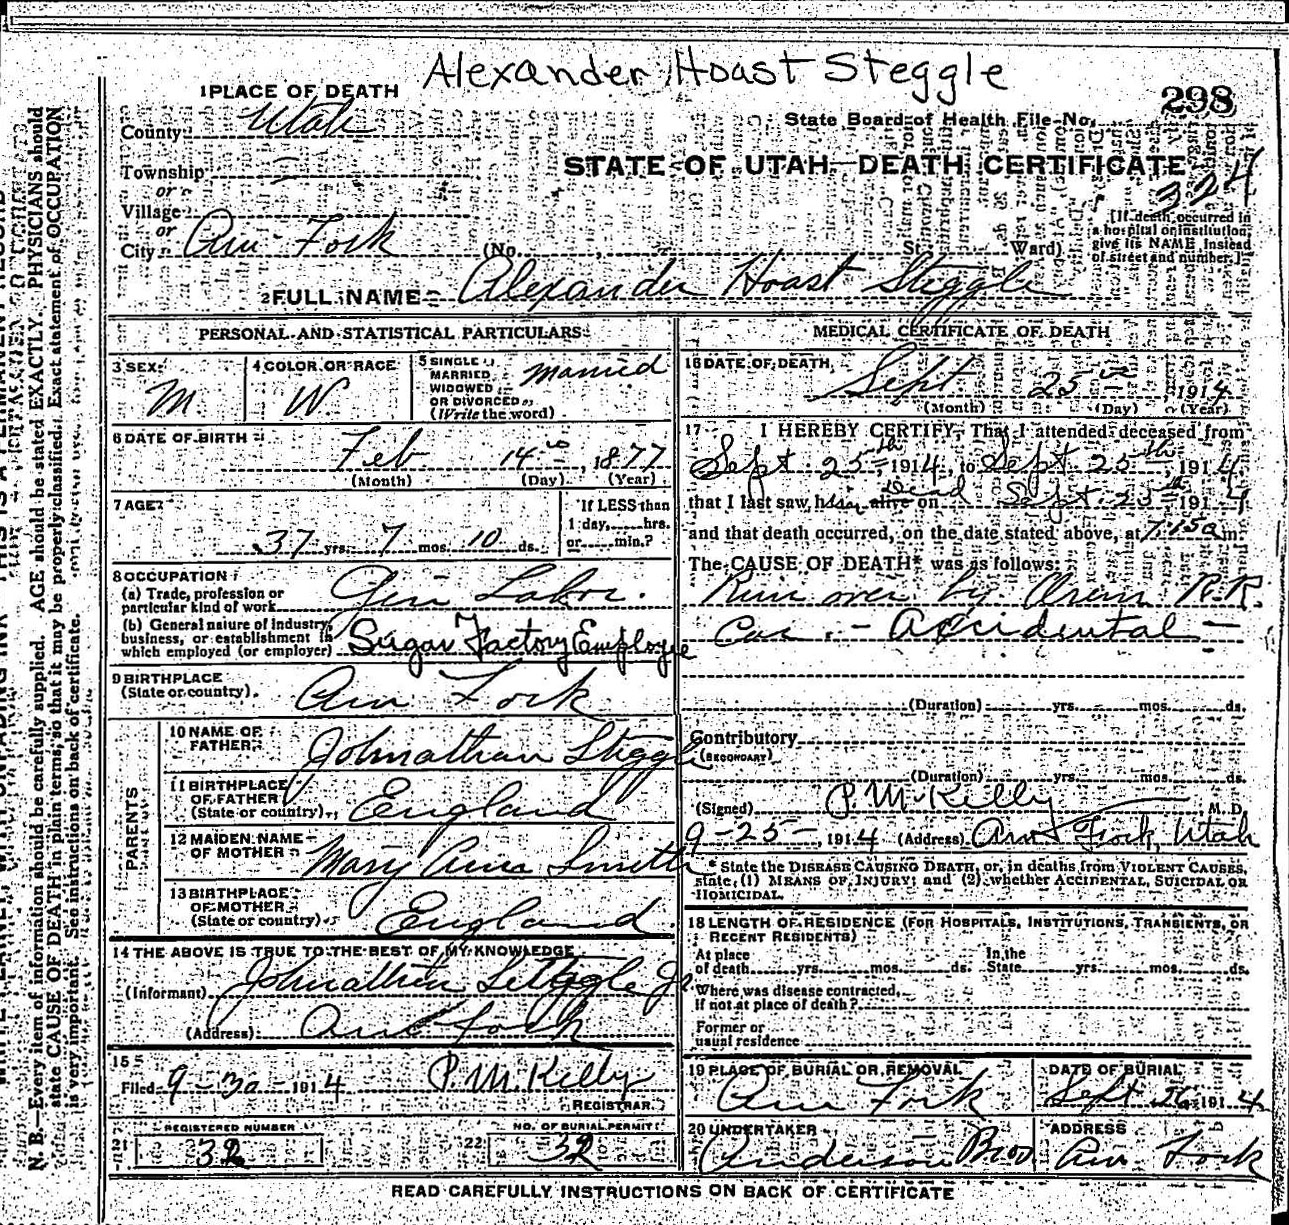 Alexander Hoast Steggle
1 PLACE OF DEATH
298
County Utah
State Board of Health File No.
Township —
STATE OF UTAH—DEATH CERTIFICATE
324
or
Village
or
City Am Fork (No. , St. Ward)
[If death occurred in
a hospital or institution,
give its NAME instead
of street and number.]
2 FULL NAME Alexander Hoast Steggle
PERSONAL AND STATISTICAL PARTICULARS
3 SEX M
4 COLOR OR RACE W
5 SINGLE
MARRIED
WIDOWED
OR DIVORCED
(Write the word) married
6 DATE OF BIRTH
Feb 14th, 1877
(Month) (Day) (Year)
7 AGE
37 yrs. 7 mos. 10 ds.
If LESS than
1 day, hrs.
or min.?
8 OCCUPATION
(a) Trade, profession or
particular kind of work Gen Labor.
(b) General nature of industry,
business, or establishment in
which employed (or employer) Sugar Factory Employe
9 BIRTHPLACE
(State or country) Am Fork
PARENTS
10 NAME OF
FATHER Johnathan Steggle
11 BIRTHPLACE
OF FATHER
(State or country) England
12 MAIDEN NAME
OF MOTHER Mary Ann Smith
13 BIRTHPLACE
OF MOTHER
(State or country) England
14 THE ABOVE IS TRUE TO THE BEST OF MY KNOWLEDGE
(Informant) Johnathan Steggle Jr
(Address) Am Fork
15
Filed 9-30-1914 P.M. Kelly
REGISTRAR
REGISTERED NUMBER
21 32
NO. OF BURIAL PERMIT
22 32
MEDICAL CERTIFICATE OF DEATH
16 DATE OF DEATH
Sept 25th, 1914
(Month) (Day) (Year)
17 I HEREBY CERTIFY, That I attended deceased from
Sept 25th 1914, to Sept 25th, 1914
that I last saw him alive on dead Sept. 25th 1914
and that death occurred, on the date stated above, at 7.15a m.
The CAUSE OF DEATH* was as follows:
Run over by Orem R.R.
Car. - Accidental -
(Duration) yrs. mos. ds.
Contributory
(SECONDARY)
(Duration) yrs. mos. ds.
(Signed) P.M. Kelly M.D.
9-25-, 1914 (Address) Am Fork, Utah
* State the DISEASE CAUSING DEATH, or, in deaths from VIOLENT CAUSES,
state (1) MEANS OF INJURY; and (2) whether ACCIDENTAL, SUICIDAL OR
HOMICIDAL.
18 LENGTH OF RESIDENCE (FOR HOSPITALS, INSTITUTIONS, TRANSIENTS, OR
RECENT RESIDENTS)
At place
of death yrs. mos. ds.
In the
State yrs. mos. ds.
Where was disease contracted,
if not at place of death?
Former or
usual residence
19 PLACE OF BURIAL OR REMOVAL
Am Fork
DATE OF BURIAL
Sept 26 1914
20 UNDERTAKER
Anderson Bros
ADDRESS
Am Fork
READ CAREFULLY INSTRUCTIONS ON BACK OF CERTIFICATE
N. B.—Every item of information should be carefully supplied. AGE should be stated EXACTLY. PHYSICIANS should
state CAUSE OF DEATH in plain terms, so that it may be properly classified. Exact statement of OCCUPATION
is very important. See instructions on back of certificate.